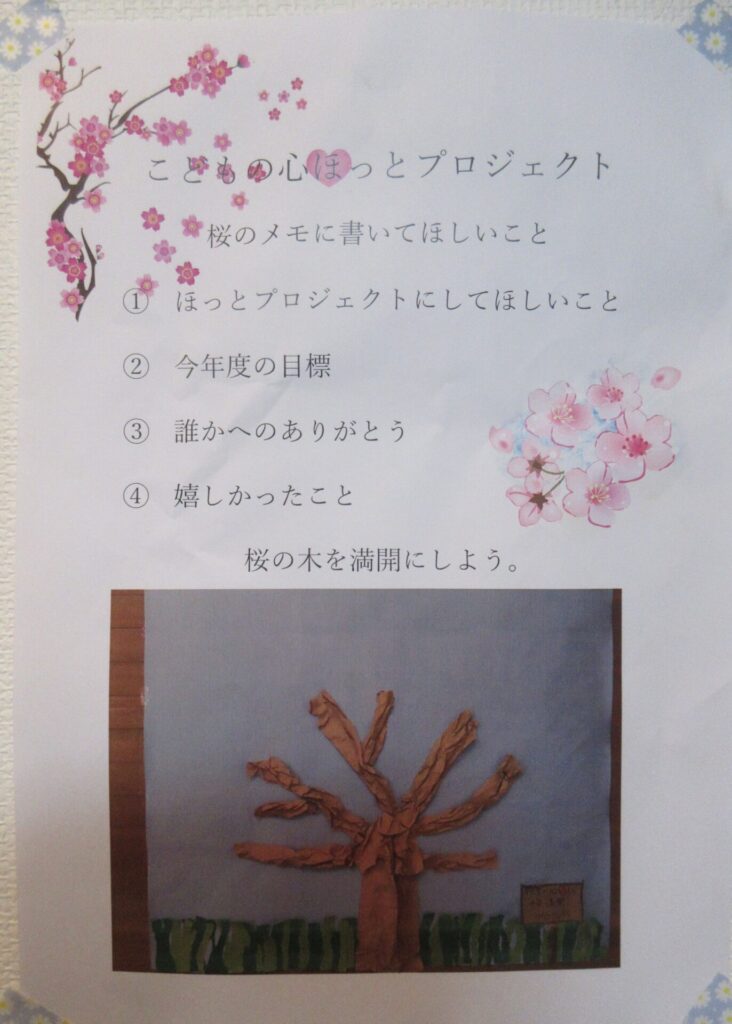 こどもの心ほっとプロジェクト
桜のメモに書いてほしいこと
① ほっとプロジェクトにしてほしいこと
② 今年度の目標
③ 誰かへのありがとう
④ 嬉しかったこと
桜の木を満開にしよう。